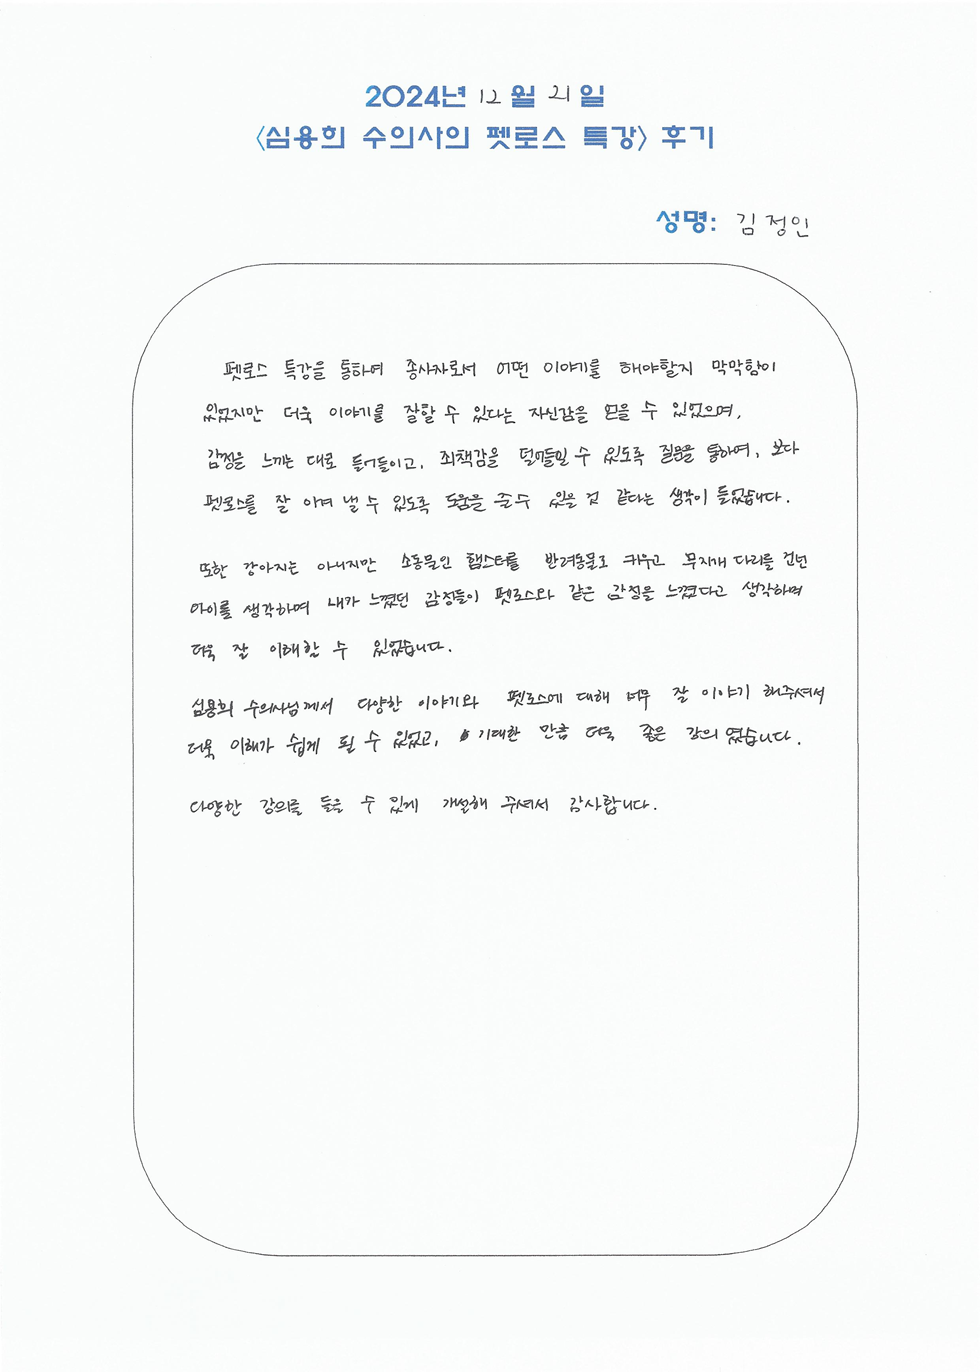 2024년 12월 21일
<심용희 수의사의 펫로스 특강> 후기
성명: 김정인
펫로스 특강을 통하여 종사자로서 어떤 이야기를 해야할지 막막함이
있었지만 더욱 이야기를 잘할 수 있다는 자신감을 얻을 수 있었으며,
감정을 느끼는 대로 들어들이고, 죄책감을 덜어들일 수 있도록 질문을 통하여, 보다
펫로스를 잘 이겨 낼 수 있도록 도움을 줄 수 있을 것 같다는 생각이 들었습니다.
또한 강아지는 아니지만 소동물인 햄스터를 반려동물로 키우고 무지개 다리를 건넌
아이를 생각하며 내가 느꼈던 감정들이 펫로스와 같은 감정을 느꼈다고 생각하며
더욱 잘 이해할 수 있었습니다.
심용희 수의사님께서 다양한 이야기와 펫로스에 대해 너무 잘 이야기 해주셔서
더욱 이해가 쉽게 될 수 있었고, 기대한 만큼 더욱 좋은 강의 였습니다.
다양한 강의를 들을 수 있게 개설해 주셔서 감사합니다.